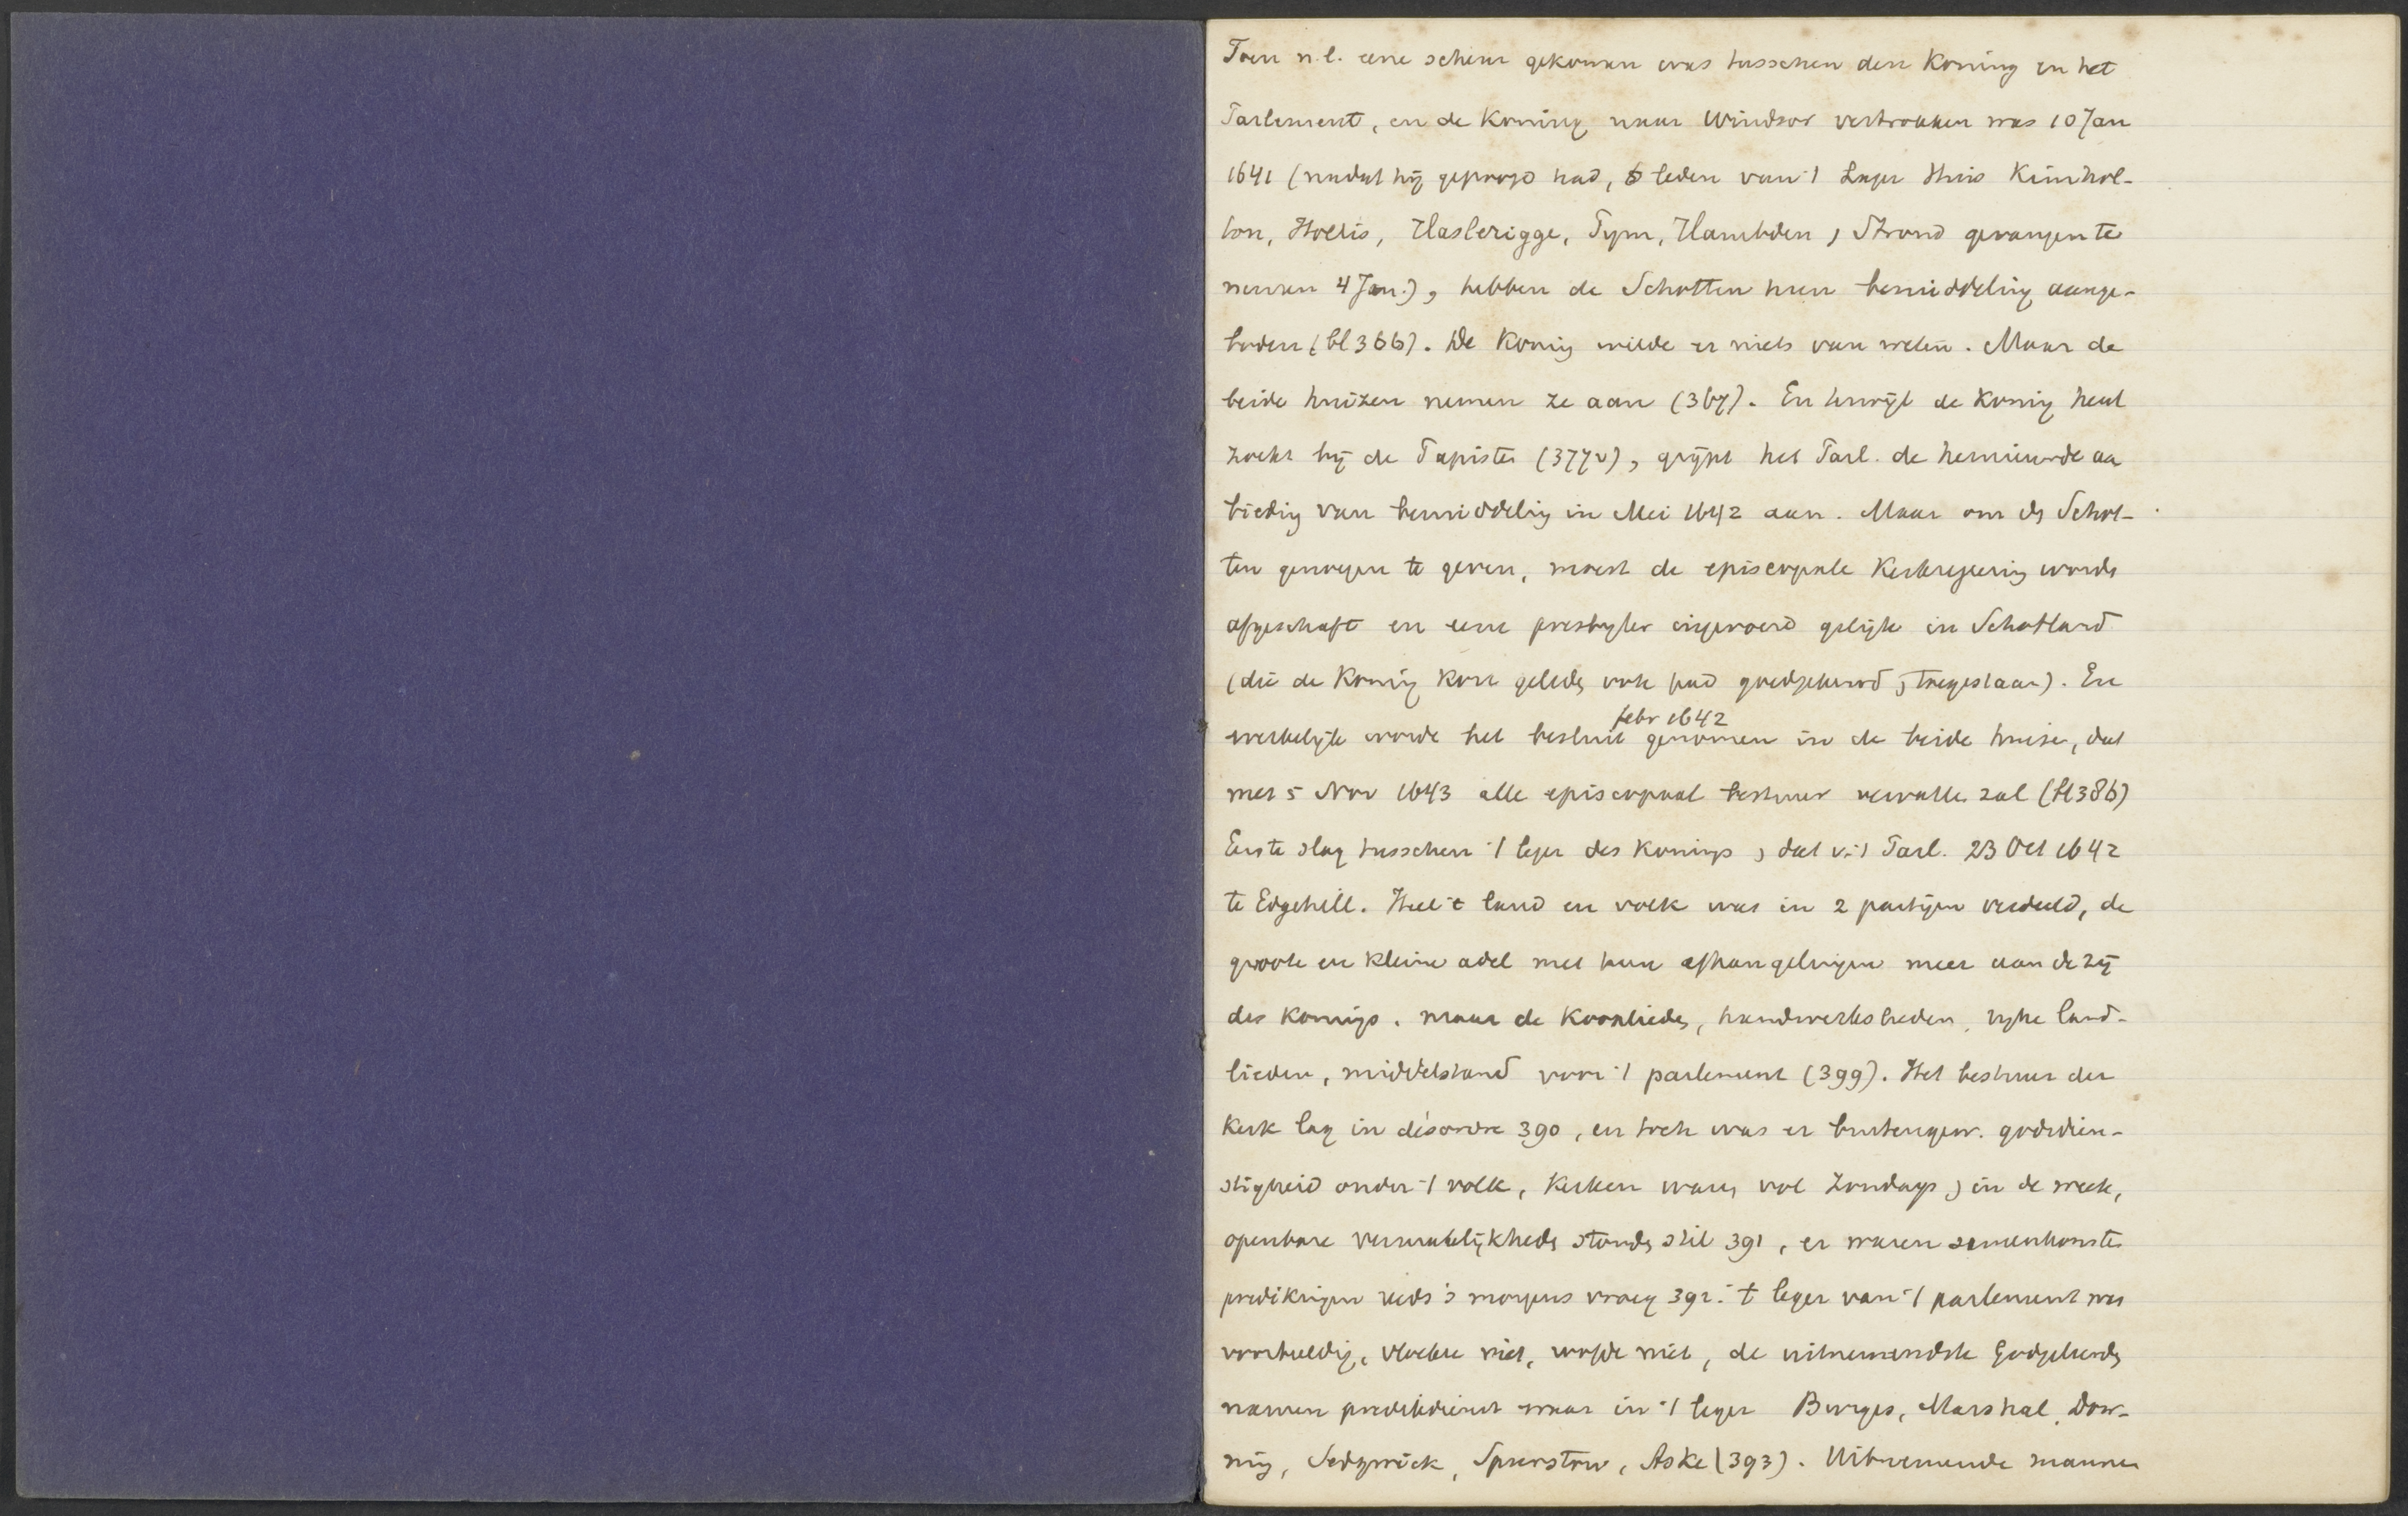 Toen n.l. eene scheur gekomen was tusschen den Koning en het
Parlement, en de Koning naar Windsor vertrokken was 10 Jan
1641 (nadat hij gepoogd had, 6 leden van 't Lager Huis Kimbol-
ton, Hollis, Haslerigge, Pym, Hambden, Stroud gevangen te
nemen 4 Jan.), hebben de Schotten hun bemiddeling aange-
boden (bl 366). De Koning wilde er niets van weten. Maar de
beide huizen nemen ze aan (367). En terwijl de Koning heul
zoekt bij de Papisten (377v), grijpt het Parl. de hernieuwde aan
bieding van bemiddeling in Mei 1642 aan. Maar om de Schot-
ten genoegen te geven, moest de episcopale Kerkregeering worden
afgeschaft en eene presbyter ingevoerd gelijk in Schotland
(die de Koning kort geleden ook had goedgekeurd, toegestaan). En
febr 1642
werkelijk worde het besluit genomen in de beide huizen, dat
met 5 Nov 1643 alle episcopaal bestuur vervallen zal (bl 386)
Eerste slag tusschen 't leger des Konings, dat v. 't Parl. 23 Oct 1642
te Edgehill. Heel 't land en volk was in 2 partijen verdeeld, de
groote en kleine adel met hun afhangelingen meer aan de zij
des Konings. maar de Kooplieden, handwerkslieden, rijke land-
lieden, middelstand voor 't parlement (399). Het bestuur der
Kerk lag in désordre 390, en toch was er buitengew. godsdien-
stigheid onder 't volk, Kerken waren vol Zondags, in de week,
openbare vermakelijkheden stonden stil 391, er waren samenkomsten
predikingen reeds 's morgens vroeg 392. 't leger van 't parlement was
voorbeeldig, vloekte niet, niet, de uitnemendste Godgeleerden
namen predikdienst waar in 't leger Burges, Marshal, Dow-
ning, Sedgwick, Spurstow, Aske (393). Uitnemende mannen